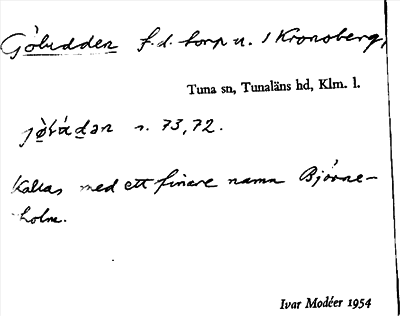 Göludden f.d. torp u. 1 Kronoberg,
Tuna sn, Tunaläns hd, Klm. l.
s. 73, 72.
Kallas med ett finare namn Björne-
holm.
Ivar Modéer 1954